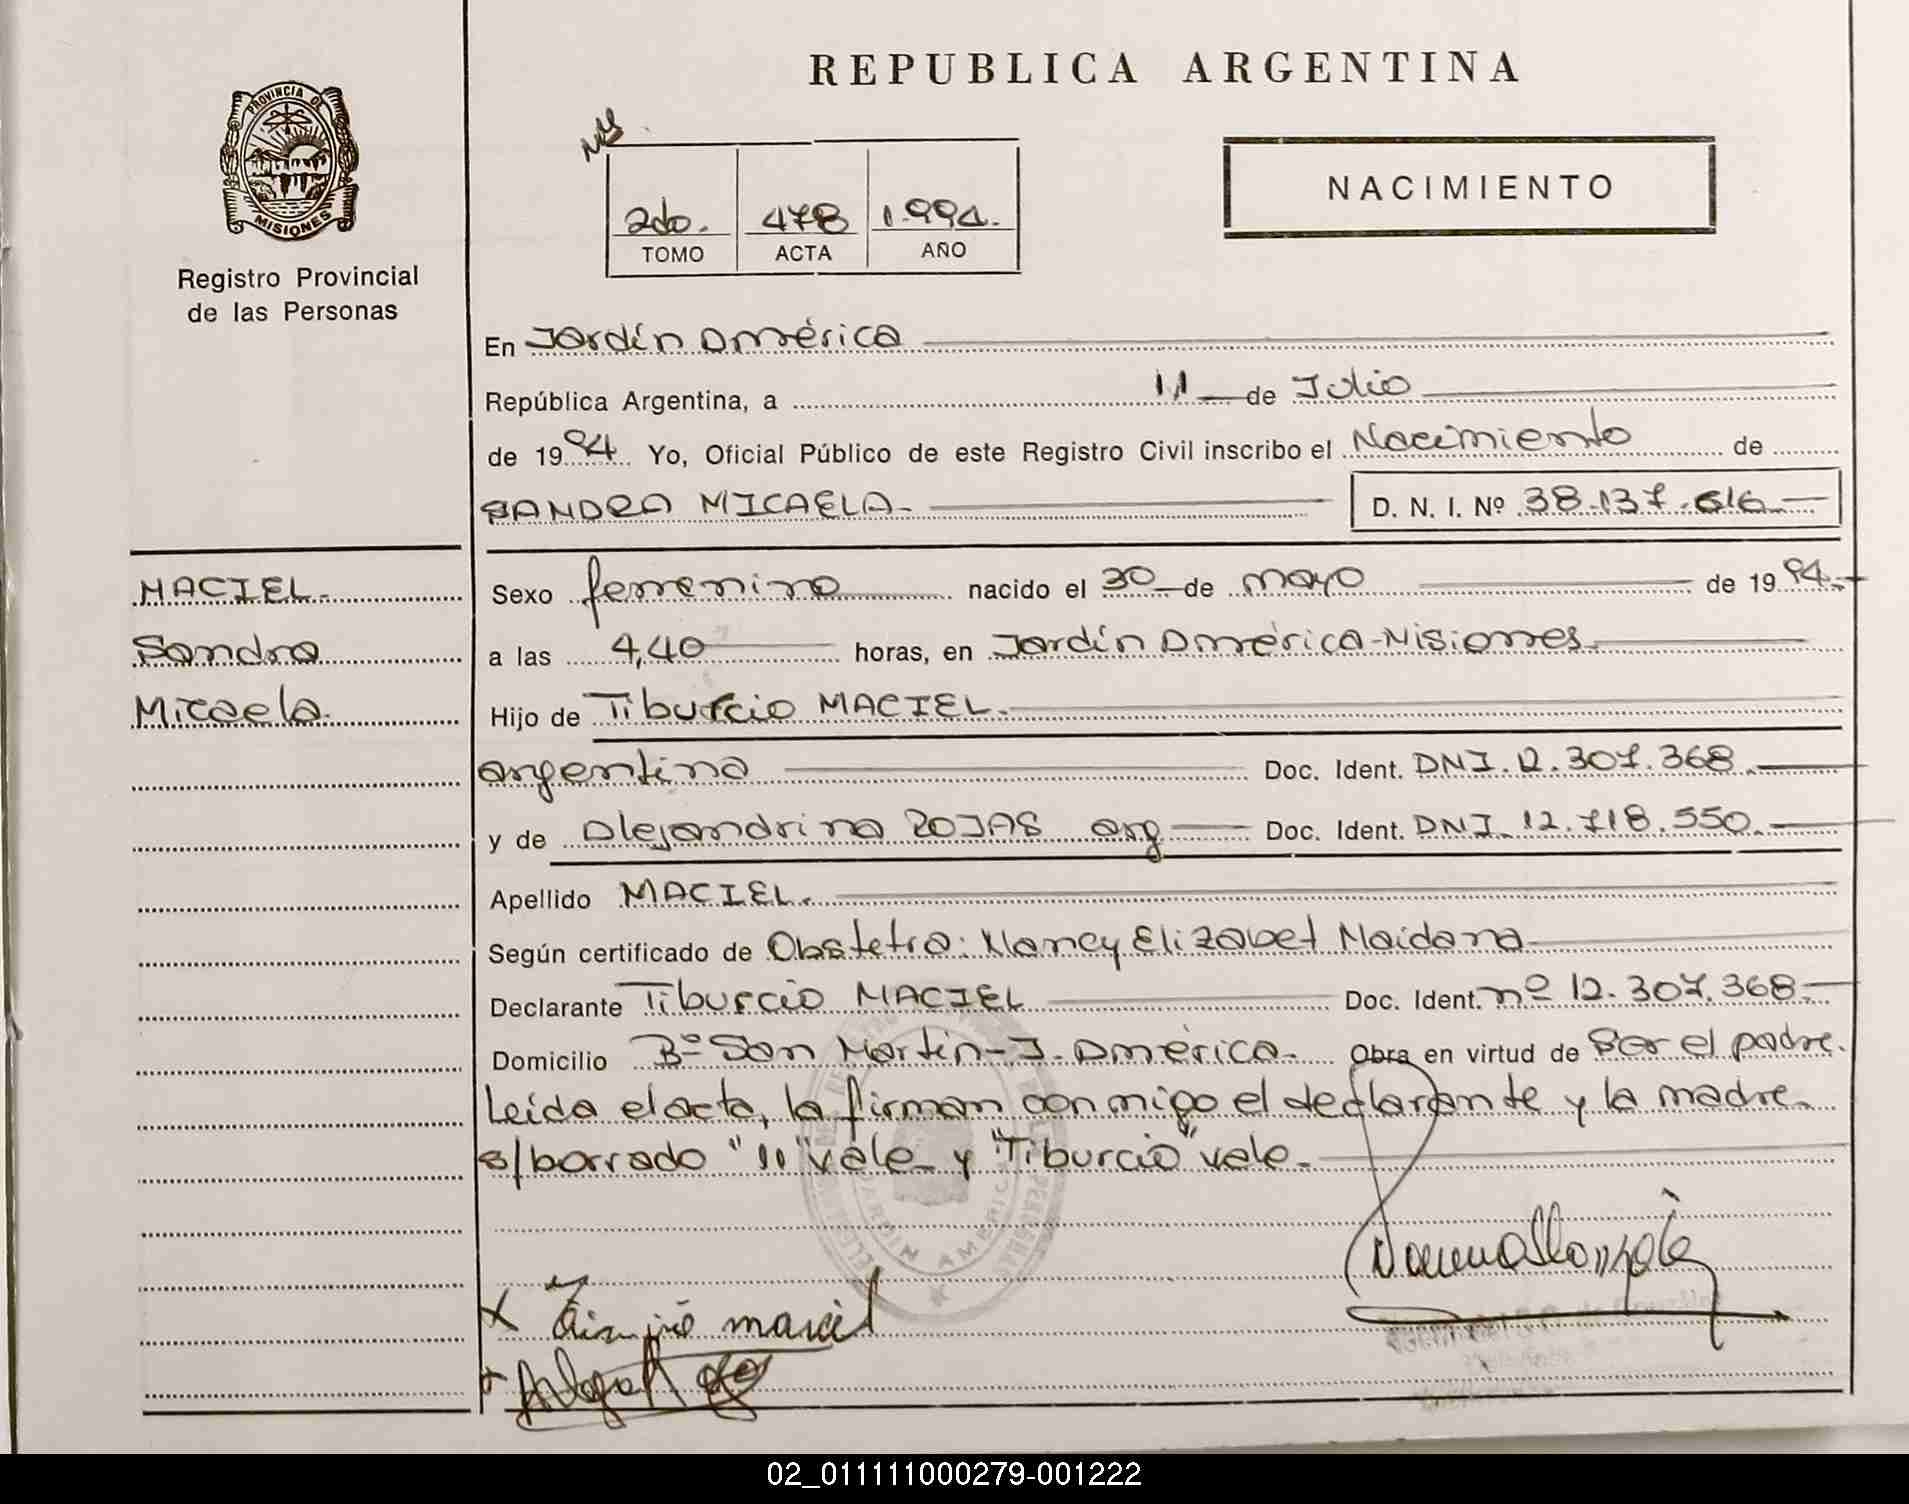 REPUBLICA ARGENTINA
PROVINCIA DE
MISIONES
Registro Provincial
de las Personas
NACIMIENTO
2do. 478 1.994.
TOMO ACTA AÑO
En Jardín América
República Argentina, a 11 de Julio
de 1994 Yo, Oficial Público de este Registro Civil inscribo el Nacimiento de
SANDRA MICAELA. D. N. I. Nº 38.137.616
MACIEL.
Sandra
Micaela.
Sexo femenino nacido el 30 de mayo de 1994.
a las 4,40 horas, en Jardín América-Misiones.
Hijo de Tiburcio MACIEL.
argentino Doc. Ident. DNI. 12.307.368.
y de Alejandrina ROJAS arg Doc. Ident. DNI. 12.718.550.
Apellido MACIEL.
Según certificado de Obstetra: Nancy Elizabet Maidana
Declarante Tiburcio MACIEL Doc. Ident. nº 12.307.368.
Domicilio Bº San Martín-J. América. Obra en virtud de Ser el padre.
Leída el acta, la firman conmigo el declarante y la madre.
s/borrado "11" vale y "Tiburcio" vale.
JARDIN AMERICA
02_011111000279-001222